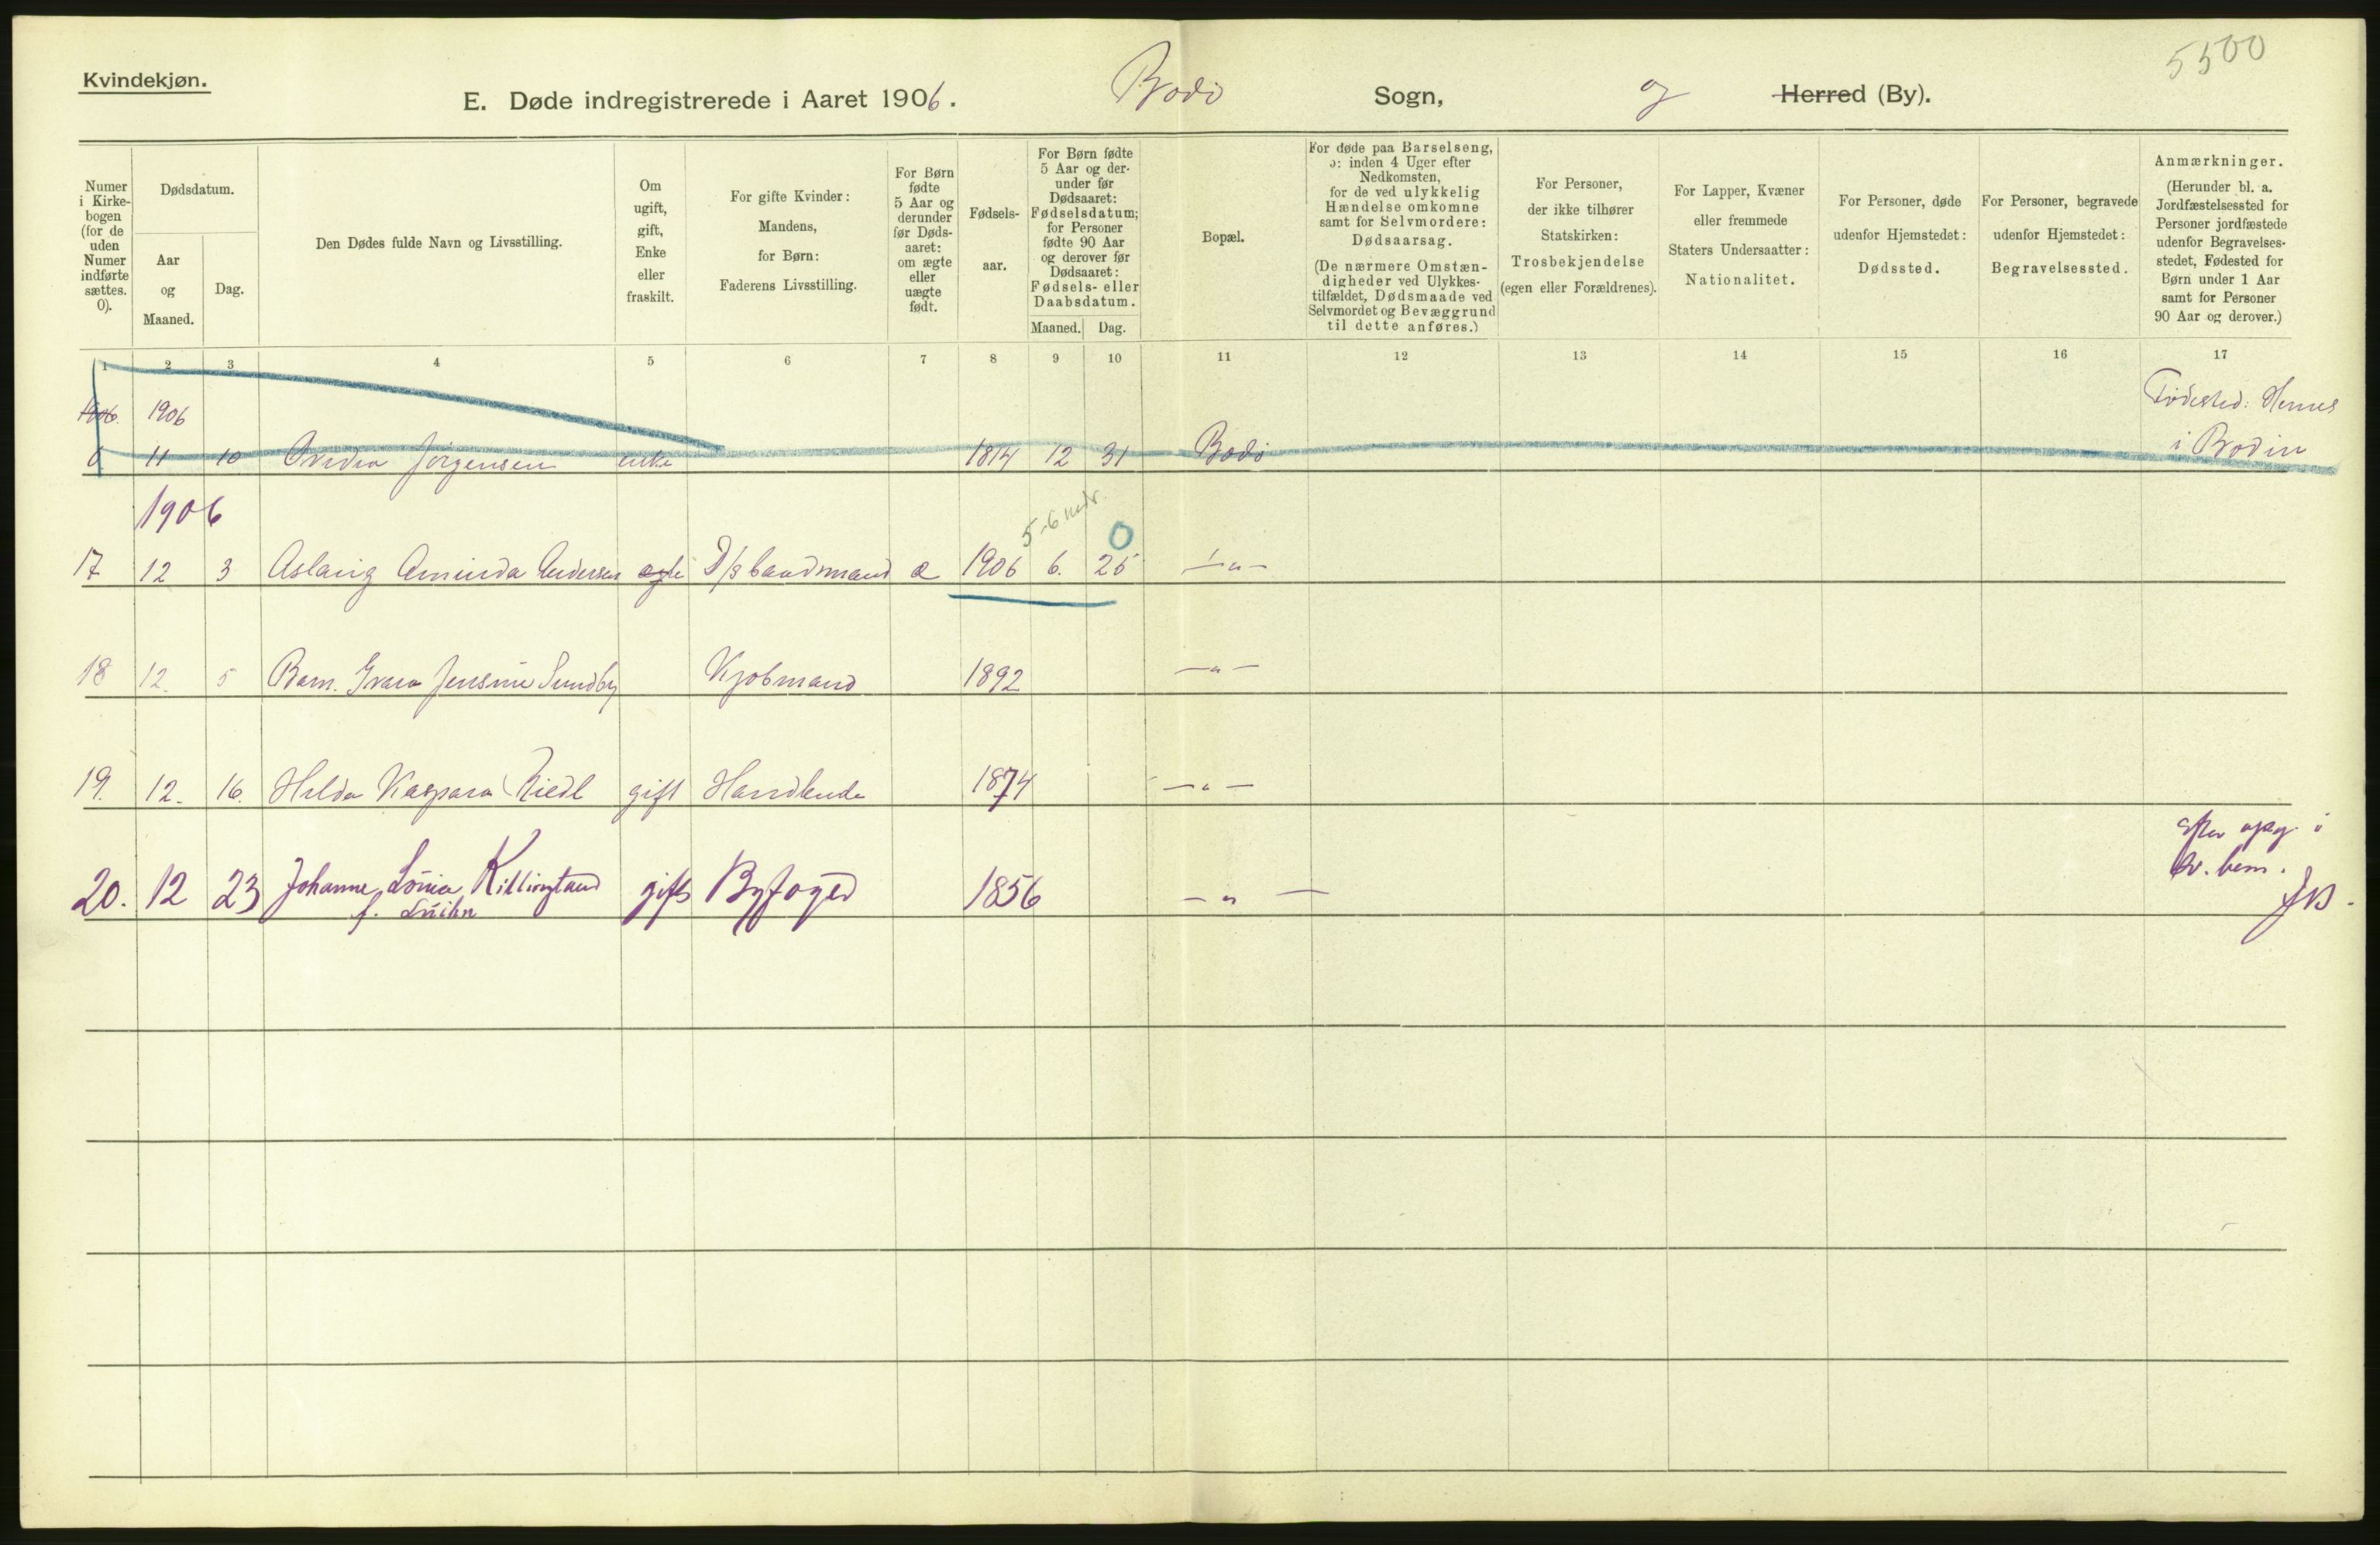 5500
Kvindekjøn.
E. Døde indregistrerede i Aaret 1906. Bodø Sogn, og Herred (By).
Numer i Kirke-bogen (for de uden Numer indførte sættes. 0).
Dødsdatum.
Aar og Maaned.
Dag.
Den Dødes fulde Navn og Livsstilling.
Om ugift, gift, Enke eller fraskilt.
For gifte Kvinder: Mandens, for Børn: Faderens Livsstilling.
For Børn fødte 5 Aar og derunder før Døds-aaret: om ægte eller uægte født.
Fødsels-aar.
For Børn fødte 5 Aar og der-under før Dødsaaret: Fødselsdatum; for Personer fødte 90 Aar og derover før Dødsaaret: Fødsels- eller Daabsdatum.
Maaned. Dag.
Bopæl.
For døde paa Barselseng, ɔ: inden 4 Uger efter Nedkomsten, for de ved ulykkelig Hændelse omkomne samt for Selvmordere: Dødsaarsag. (De nærmere Omstæn-digheder ved Ulykkes-tilfældet, Dødsmaade ved Selvmordet og Bevæggrund til dette anføres.)
For Personer, der ikke tilhører Statskirken: Trosbekjendelse (egen eller Forældrenes).
For Lapper, Kvæner eller fremmede Staters Undersaatter: Nationalitet.
For Personer, døde udenfor Hjemstedet: Dødssted.
For Personer, begravede udenfor Hjemstedet: Begravelsessted.
Anmærkninger. (Herunder bl. a. Jordfæstelsessted for Personer jordfæstede udenfor Begravelses-stedet, Fødested for Børn under 1 Aar samt for Personer 90 Aar og derover.)
1 2 3 4 5 6 7 8 9 10 11 12 13 14 15 16 17
1906. 1906 Fødested: Hernes
11 10 Jørgensen enke 1814 12 31 Bodø i Bodin
1906 5-6 mdr. 0
17 12 3 Aslaug Aminda Andersen ægte D/s baadsmand æ 1906 6. 25 —"—
18 12. 5 Barn. Jensine Sundby Kjøbmand 1892 —"—
19. 12. 16. Hilda Kaspara Riedl gift Handlende 1874 —"—
Efter opg. i
20. 12 23 Johanne Lovisa Killingland gift Byfoged 1856 —"— bem.
f.